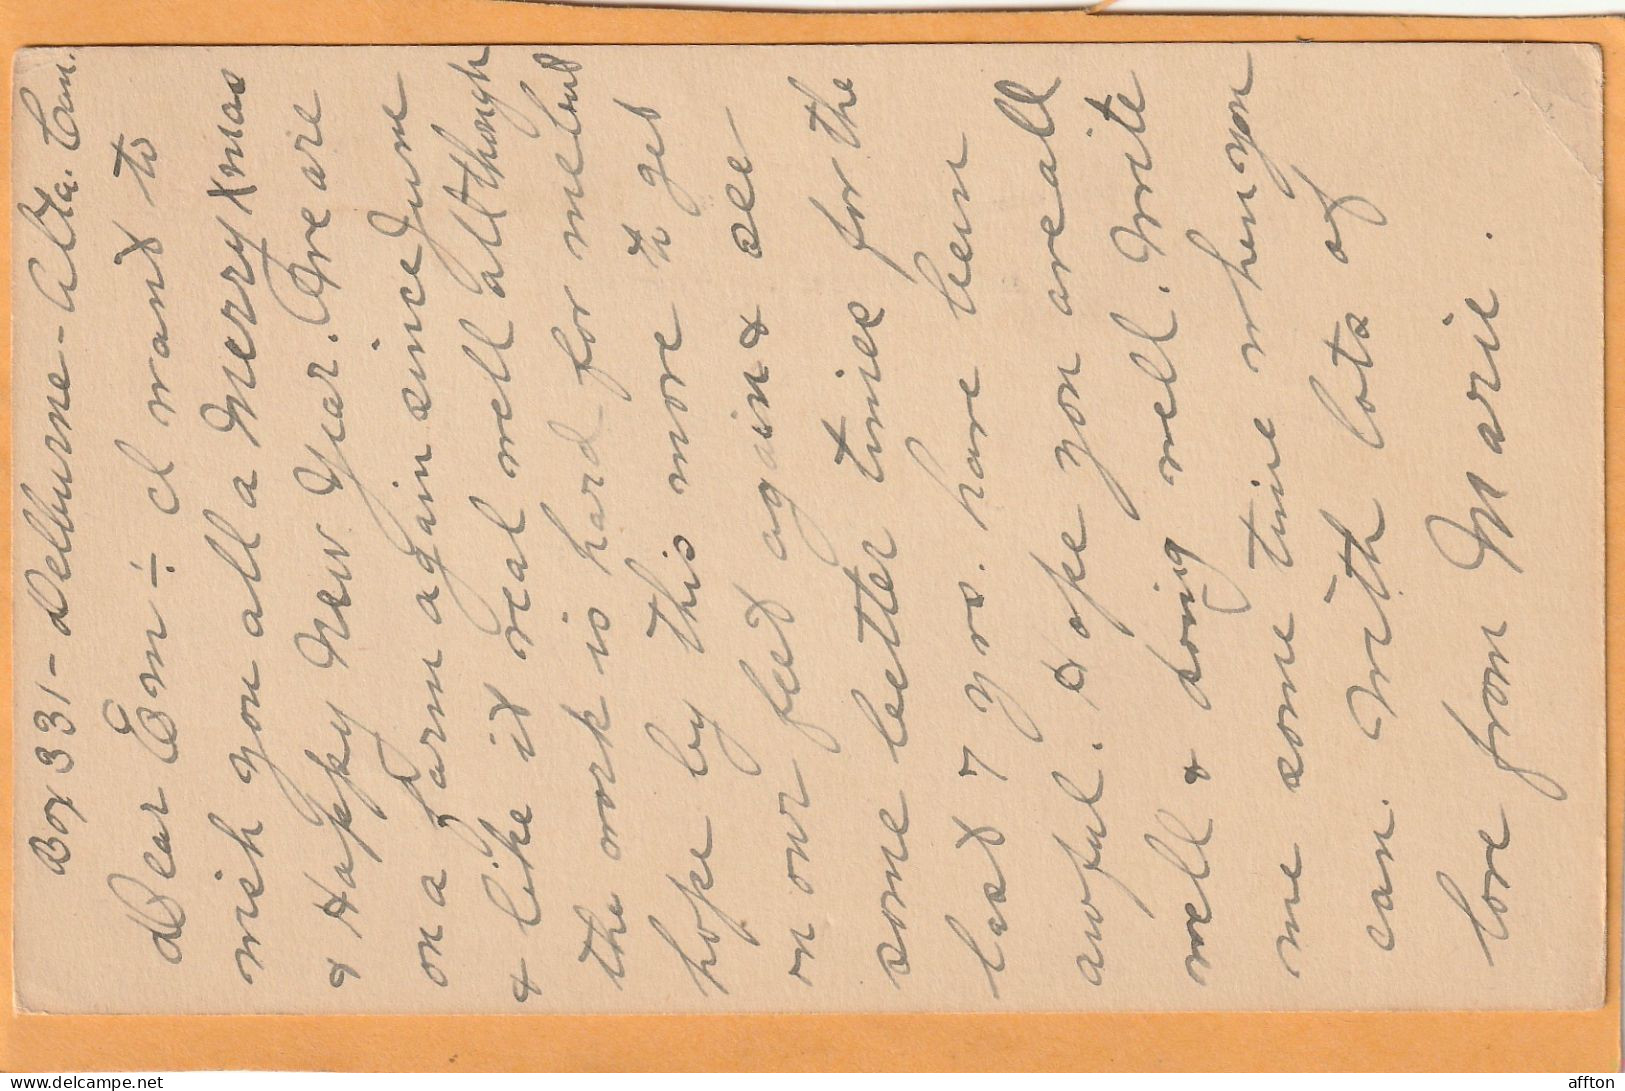 Box 331 - Delburne - Alta. Can.
Dear Em ÷ I want to
wish you all a Merry Xmas
& Happy New Year. We are
on a farm again since June
& like it real well allthough
the work is hard for me but
hope by this more to get
on our feet again & see
some better times for the
last 7 yrs. have been
awful. Hope you are all
well & doing well. Write
me some time when you
can. With lots of
love from Marie.
www.delcampe.net
affton